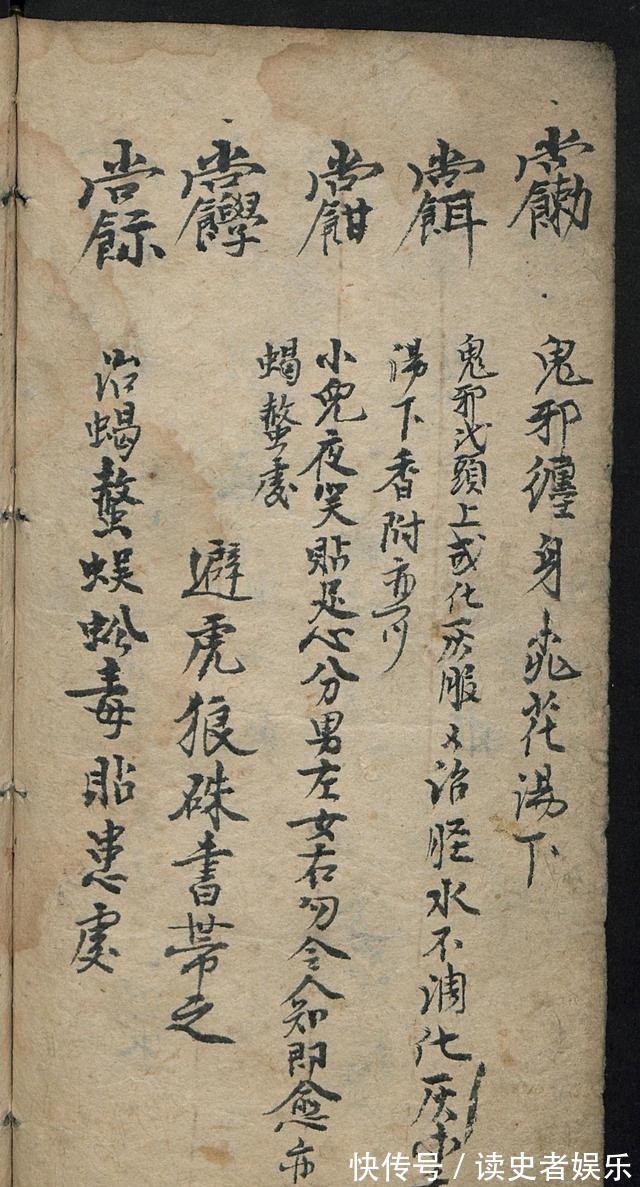 鬼邪纏身桃花湯下
鬼邪頭上或化灰服又治経水不調化灰
湯下香附亦可
小兒夜哭貼足心分男左女右勿令人知即愈亦
蝎螫處
避虎狼硃書帶之
治蝎螫蜈蚣毒貼患處
快传号/读史者娱乐